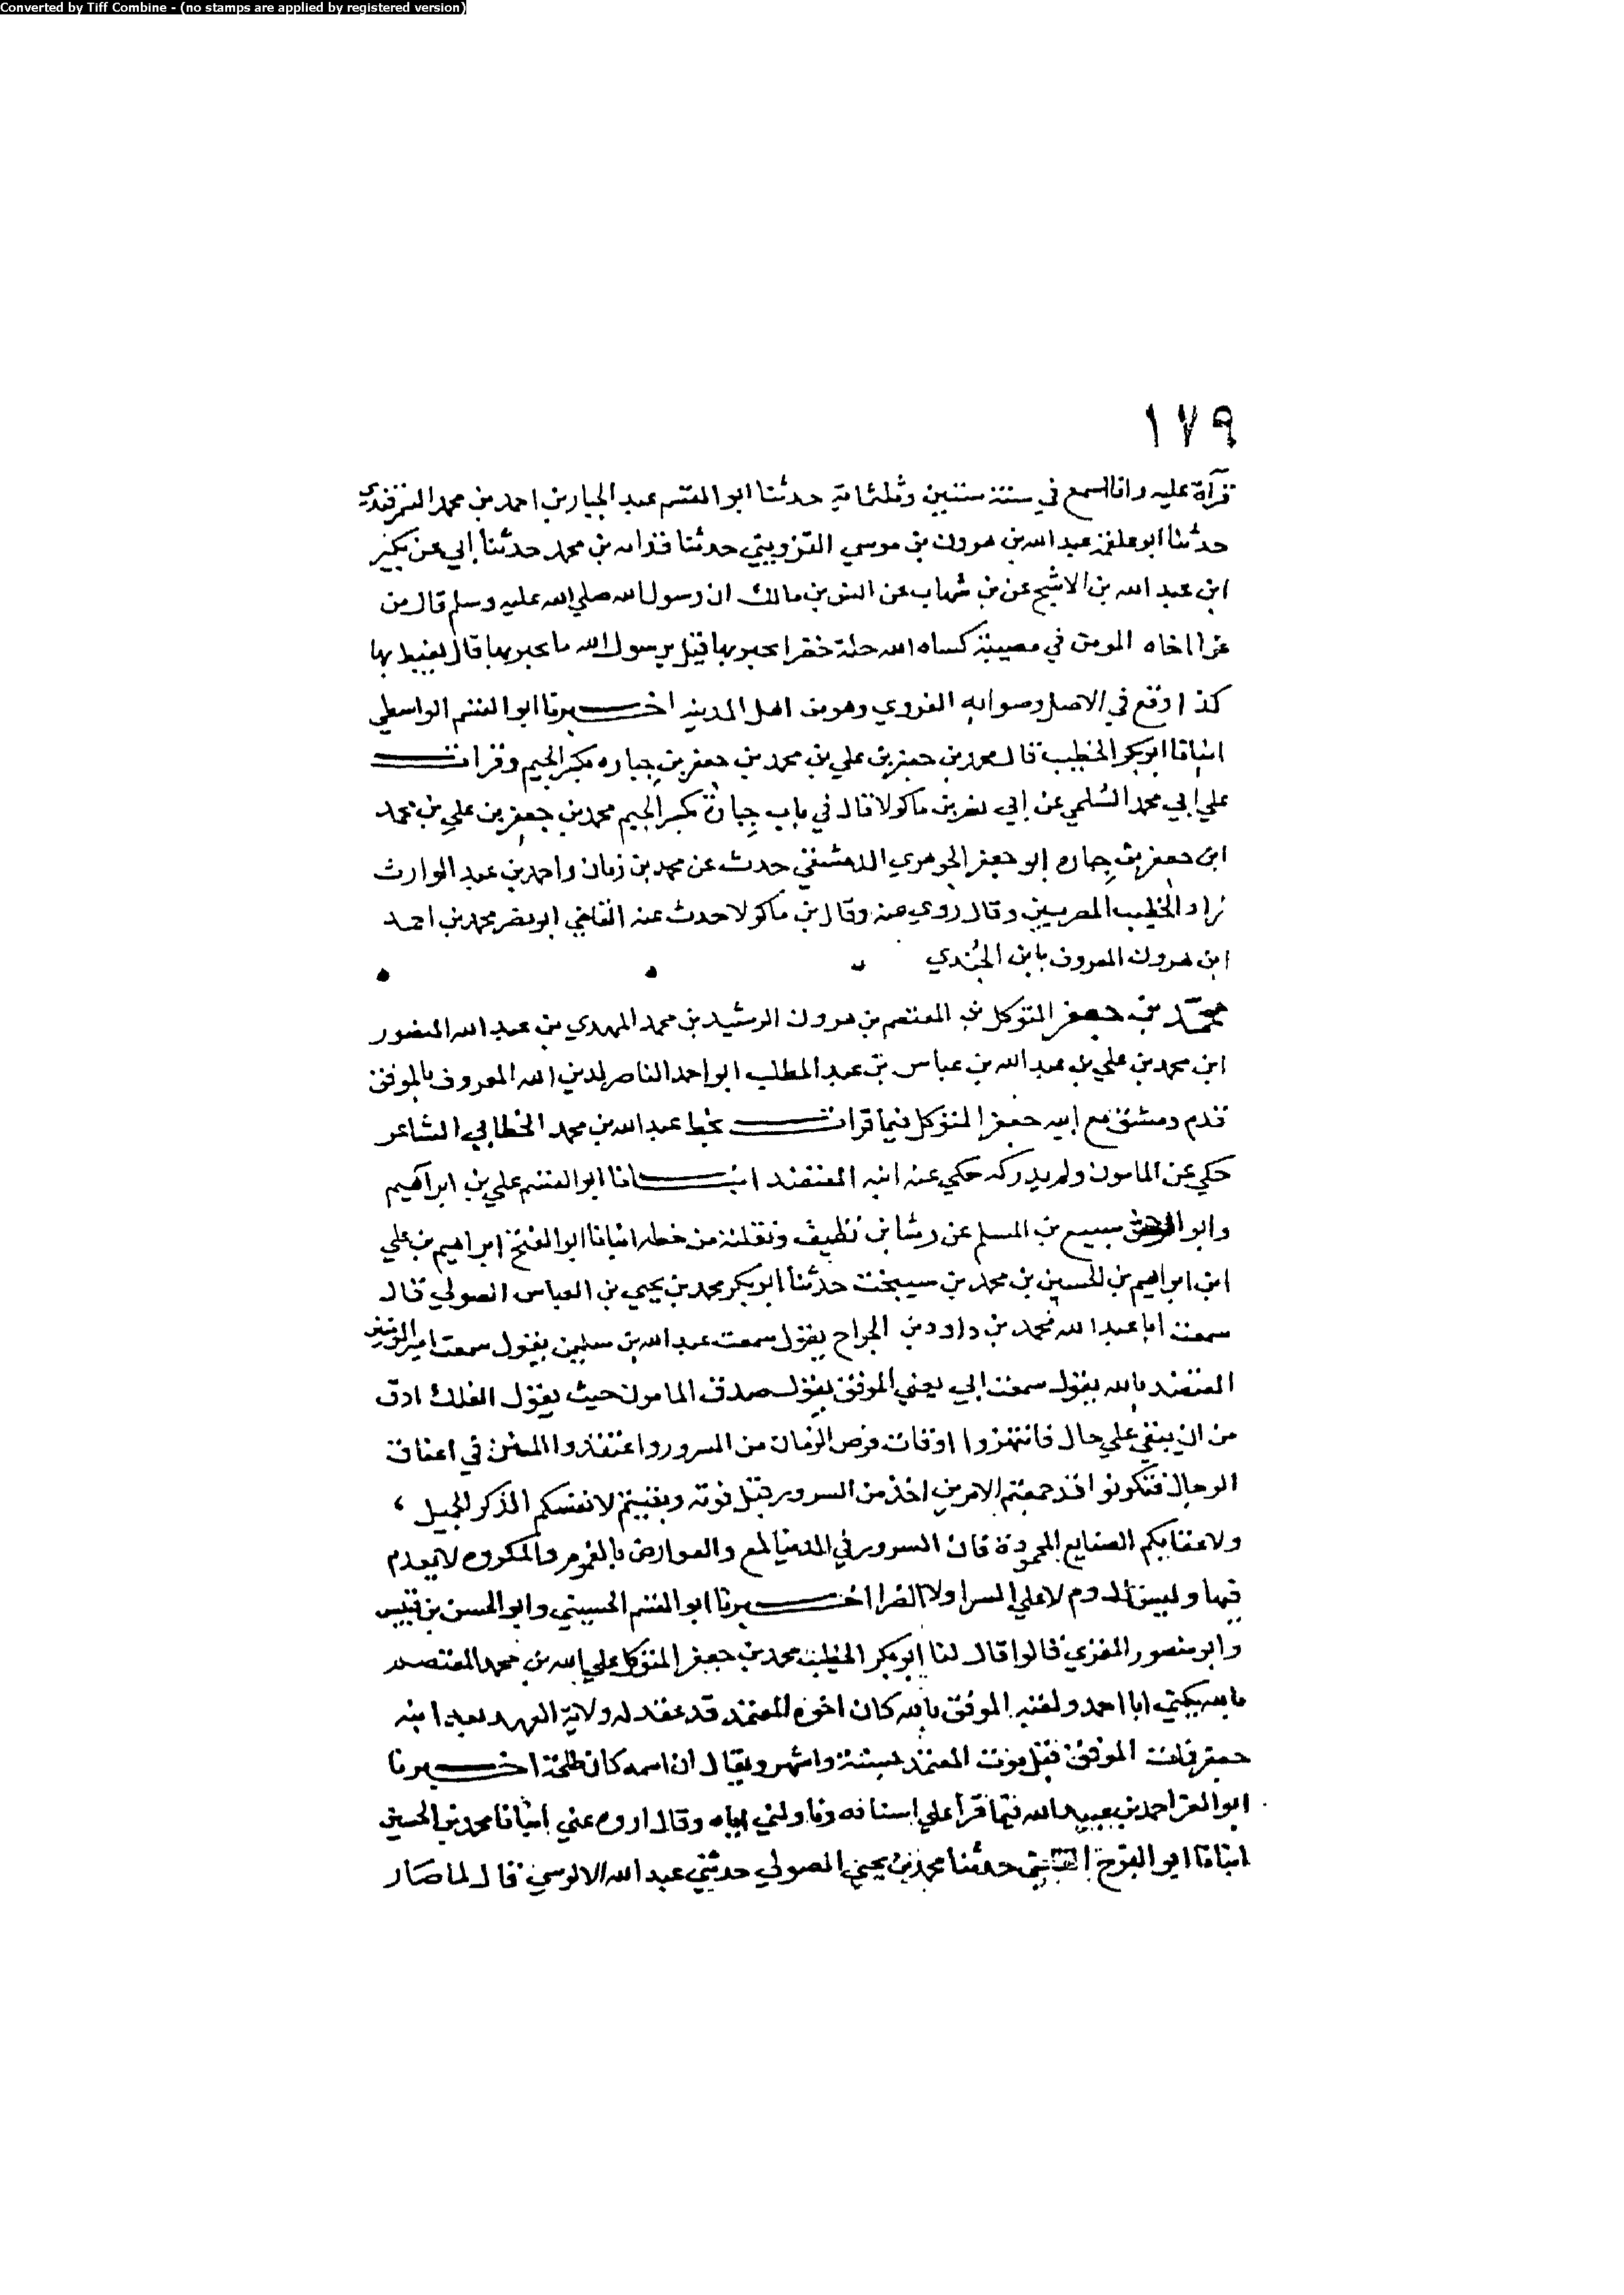 Converted by Tiff Combine - (no stamps are applied by registered version)
١٧٩
قرآة عليه وانا اسمع في سنة ستين وثلثماية حدثنا ابو القسم عبد الجبار بن احمد بن محمد السمرقندي
حدثنا ابو علقمة عبد الله بن هرون بن موسي القزويني حدثنا قدامه بن محمد حدثنا ابي عن بكير
ابن عبد الله بن الاشج عن بن شهاب عن انس بن مالك ان رسول الله صلي الله عليه وسلم قال من
عزا اخاه المومن في مصيبة كساه الله حلة خضرا يحبر بها قيل يرسول الله ما يحبر بها قال يغبط بها
كذا وقع في الاصل وصوابه الفروي وهو من اهل المدينه اخبرنا ابو القسم الواسطي
انبانا ابو بكر الخطيب قال محمد بن جعفر بن علي بن محمد بن جعفر بن جباره بكسر الجيم وقرات
علي ابي محمد السُلمي عن ابي نصر بن ماكولا قال في باب جِبارة بكسر الجيم محمد بن جعفر بن علي بن محمد
ابن جعفر بن جِباره ابو جعفر الجوهري الدمشقي حدث عن محمد بن زبان واحمد بن عبد الوارث
زاد الخطيب المصريين وقال روي عنه وقال بن ماكولا حدث عنه القاضي ابو نصر محمد بن احمد
ابن هرون المعروف بابن الجُندي
محمّد بن جعفر المتوكل بن المعتصم بن هرون الرشيد بن محمد المهدي بن عبد الله المنصور
ابن محمد بن علي بن عبد الله بن عباس بن عبد المطلب ابو احمد الناصر لدين الله المعروف بالموفق
قدم دمشق مع ابيه جعفر المتوكل فيما قرات بخط عبد الله بن محمد الخطابي الشاعر
حكي عن المامون ولم يدركه حكي عنه ابنه المعتضد انبانا ابو القسم علي بن ابراهيم
وابو الوحش سبيع بن المسلم عن رشا بن نظيف ونقلته من خطه انبانا ابو الفتح ابراهيم بن علي
ابن ابراهيم بن الحسين بن محمد بن سيبخت حدثنا ابو بكر محمد بن يحيي بن العباس الصولي قال
سمعت ابا عبد الله محمد بن داود بن الجراح يقول سمعت عبد الله بن سليمن يقول سمعت امير المومنين
المعتضد بالله يقول سمعت ابي يعني الموفق يقول صدق المامون حيث يقول الفلك ادق
من ان يبقي علي حال فانتهزوا اوقات فرص الزمان من السرور واعتقدوا المنن في اعناق
الرجال فتكونوا قد جمعتم الامرين اخذ من السرور قبل فوته وبقيتم لانفسكم الذكر الجميل ،
ولاعقابكم الصنايع المحمودة فان السرور في الدنيا لمع والعوارض بالغموم والمكروه لا تعدم
فيها وليس الدوم لا علي السرا ولا الضرا اخبرنا ابو القسم الحسيني وابو الحسن بن قبيس
وابو منصور المقري قالوا قال لنا ابو بكر الخطيب محمد بن جعفر المتوكل علي الله بن محمد المعتصم
بالله يكني ابا احمد ولقبه الموفق بالله كان اخوه المعتمد قد عقد له ولاية العهد بعد ابنه
جعفر فمات الموفق قبل موت المعتمد بسنة واشهر ويقال ان اسمه كان طلحة اخبرنا
ابو العز احمد بن عبيد الله فيما قرا علي اسناده وناولني اياه وقال اروه عني انبانا محمد بن الحسين
انبانا ابو الفرج حدثنا محمد بن يحيي الصولي حدثني عبد الله الالوسي قال لما صار